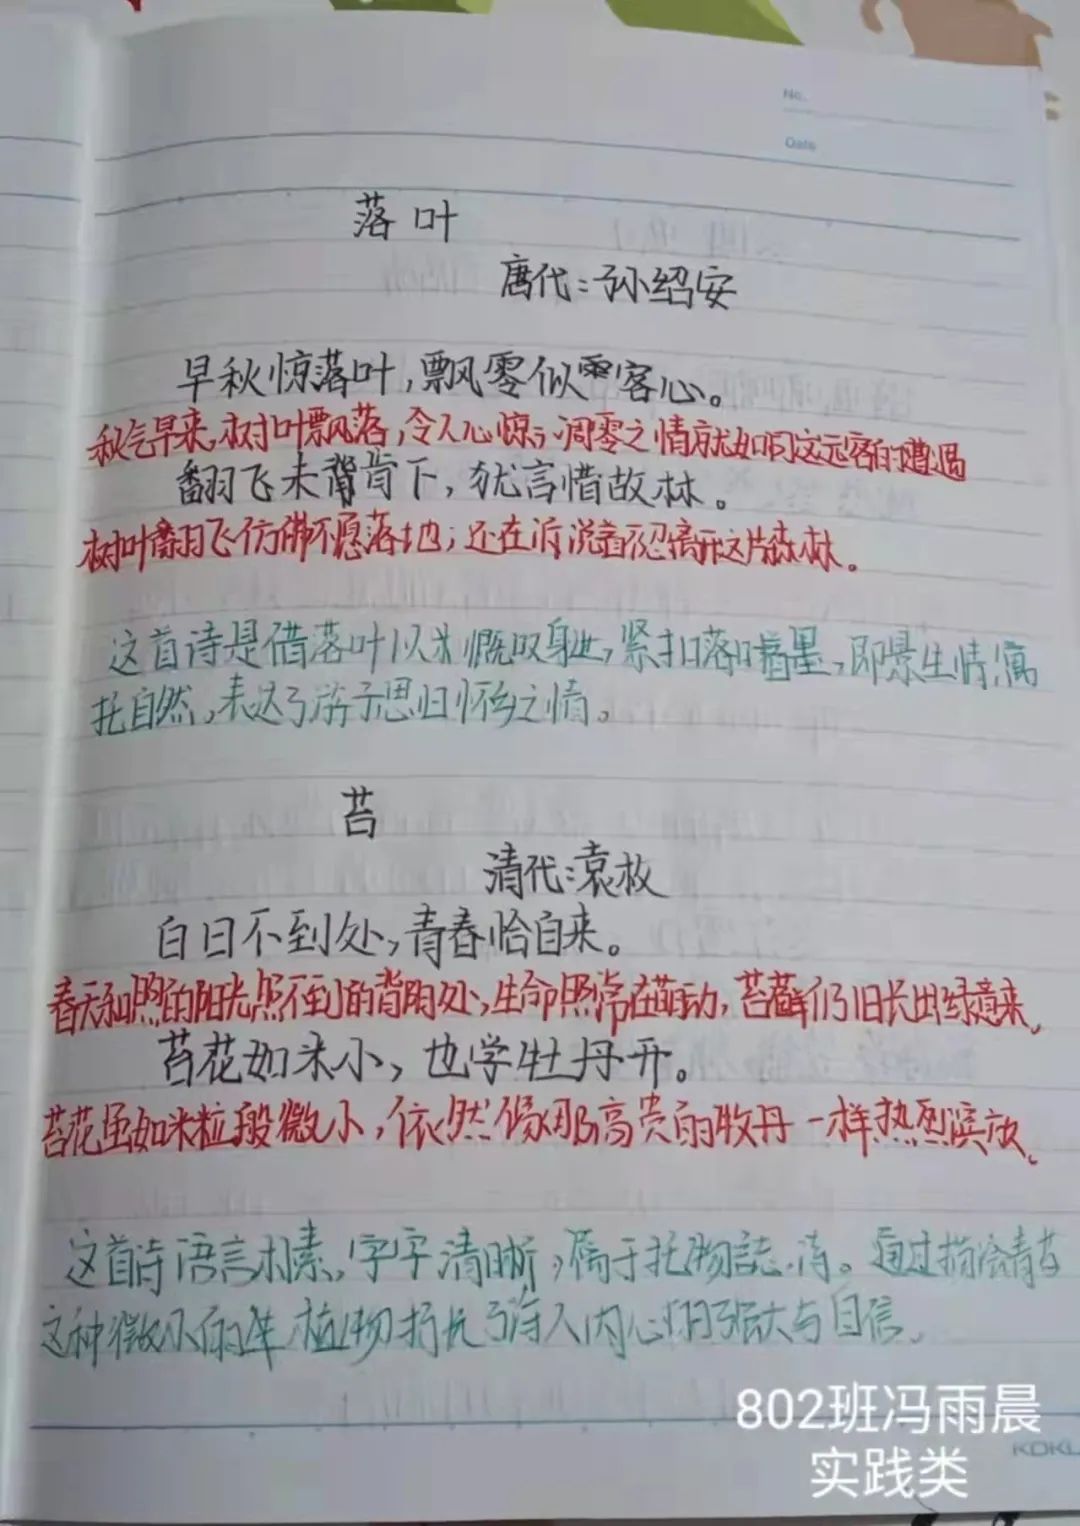 No.
Date
落叶
唐代:孙绍安
早秋惊落叶,飘零似客心。
秋气早来,树叶飘落,令人心惊;凋零之情就如同这远客的遭遇
翻飞未肯下,犹言惜故林。
树叶翻飞仿佛不愿落地;还在诉说着不忍离开这片森林。
这首诗是借落叶以慨叹身世,紧扣落叶着墨,即景生情,寓
托自然,表达了游子思归怀乡之情。
苔
清代:袁枚
白日不到处,青春恰自来。
春天和煦的阳光照不到的背阴处,生命照常在萌动,苔藓仍旧长出绿意来。
苔花如米小,也学牡丹开。
苔花虽如米粒般微小,依然像那高贵的牡丹一样热烈绽放。
这首诗语言朴素,字字清晰,属于托物言志诗。通过描绘青苔
这种微小的植物抒托了诗人内心的强大与自信。
802班冯雨晨
实践类